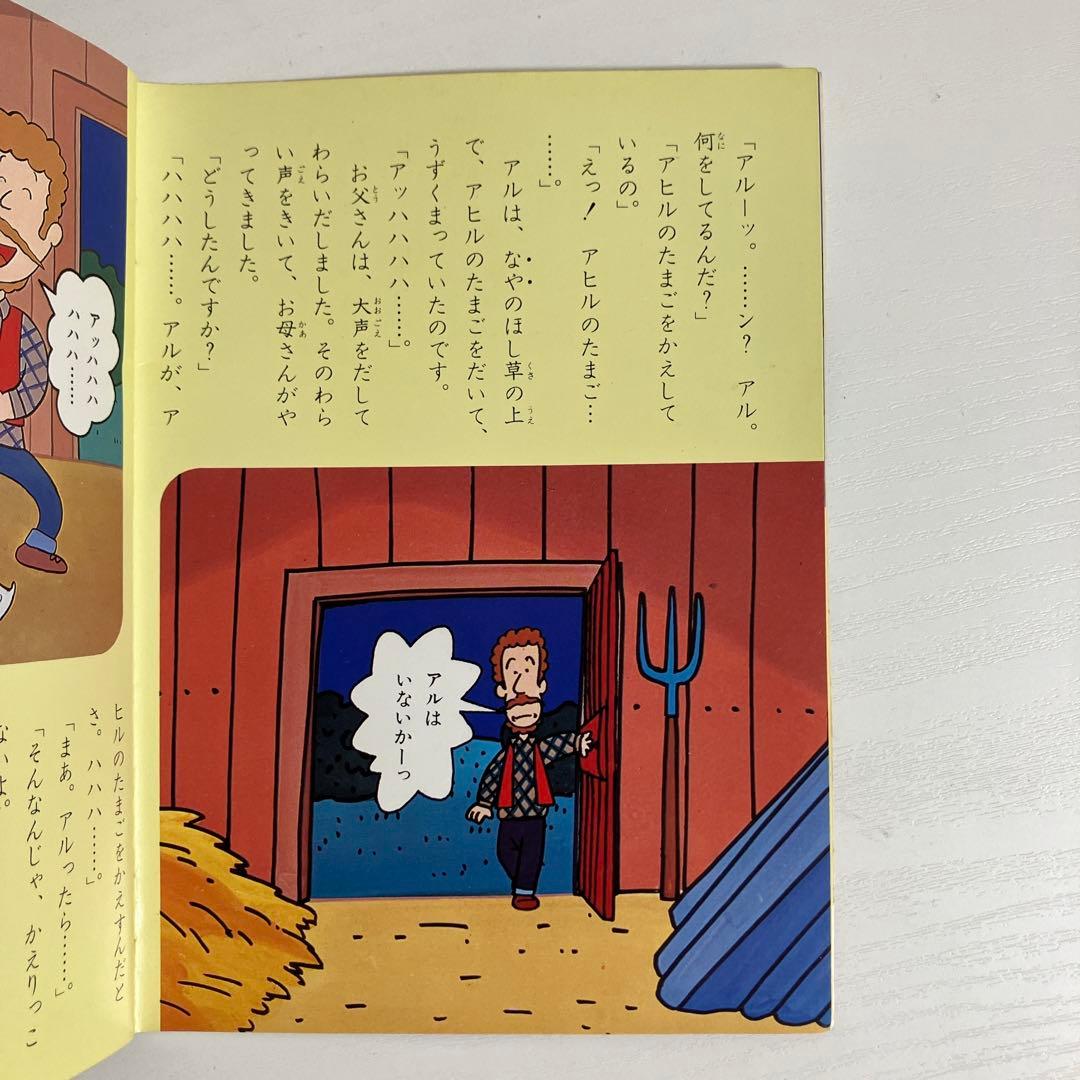 「アルーッ。……ン？　アル。
何をしてるんだ？」
「アヒルのたまごをかえして
いるの」。
「えっ！　アヒルのたまご…
……」。
アルは、なやのほし草の上
で、アヒルのたまごをだいて、
うずくまっていたのです。
「アッハハハハ……」。
お父さんは、大声をだして
わらいだしました。そのわら
い声をきいて、お母さんがや
ってきました。
「どうしたんですか？」
「ハハハハ……。アルが、ア
アルは
いないかーっ
アッハハハ
ハハハ……
ヒルのたまごをかえすんだと
さ。ハハハ……」。
「まあ。アルったら……」。
「そんなんじゃ、かえりっこ
ないよ。